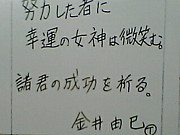 努力した者に
幸運の女神は微笑む。
諸君の成功を祈る。
金井由巳